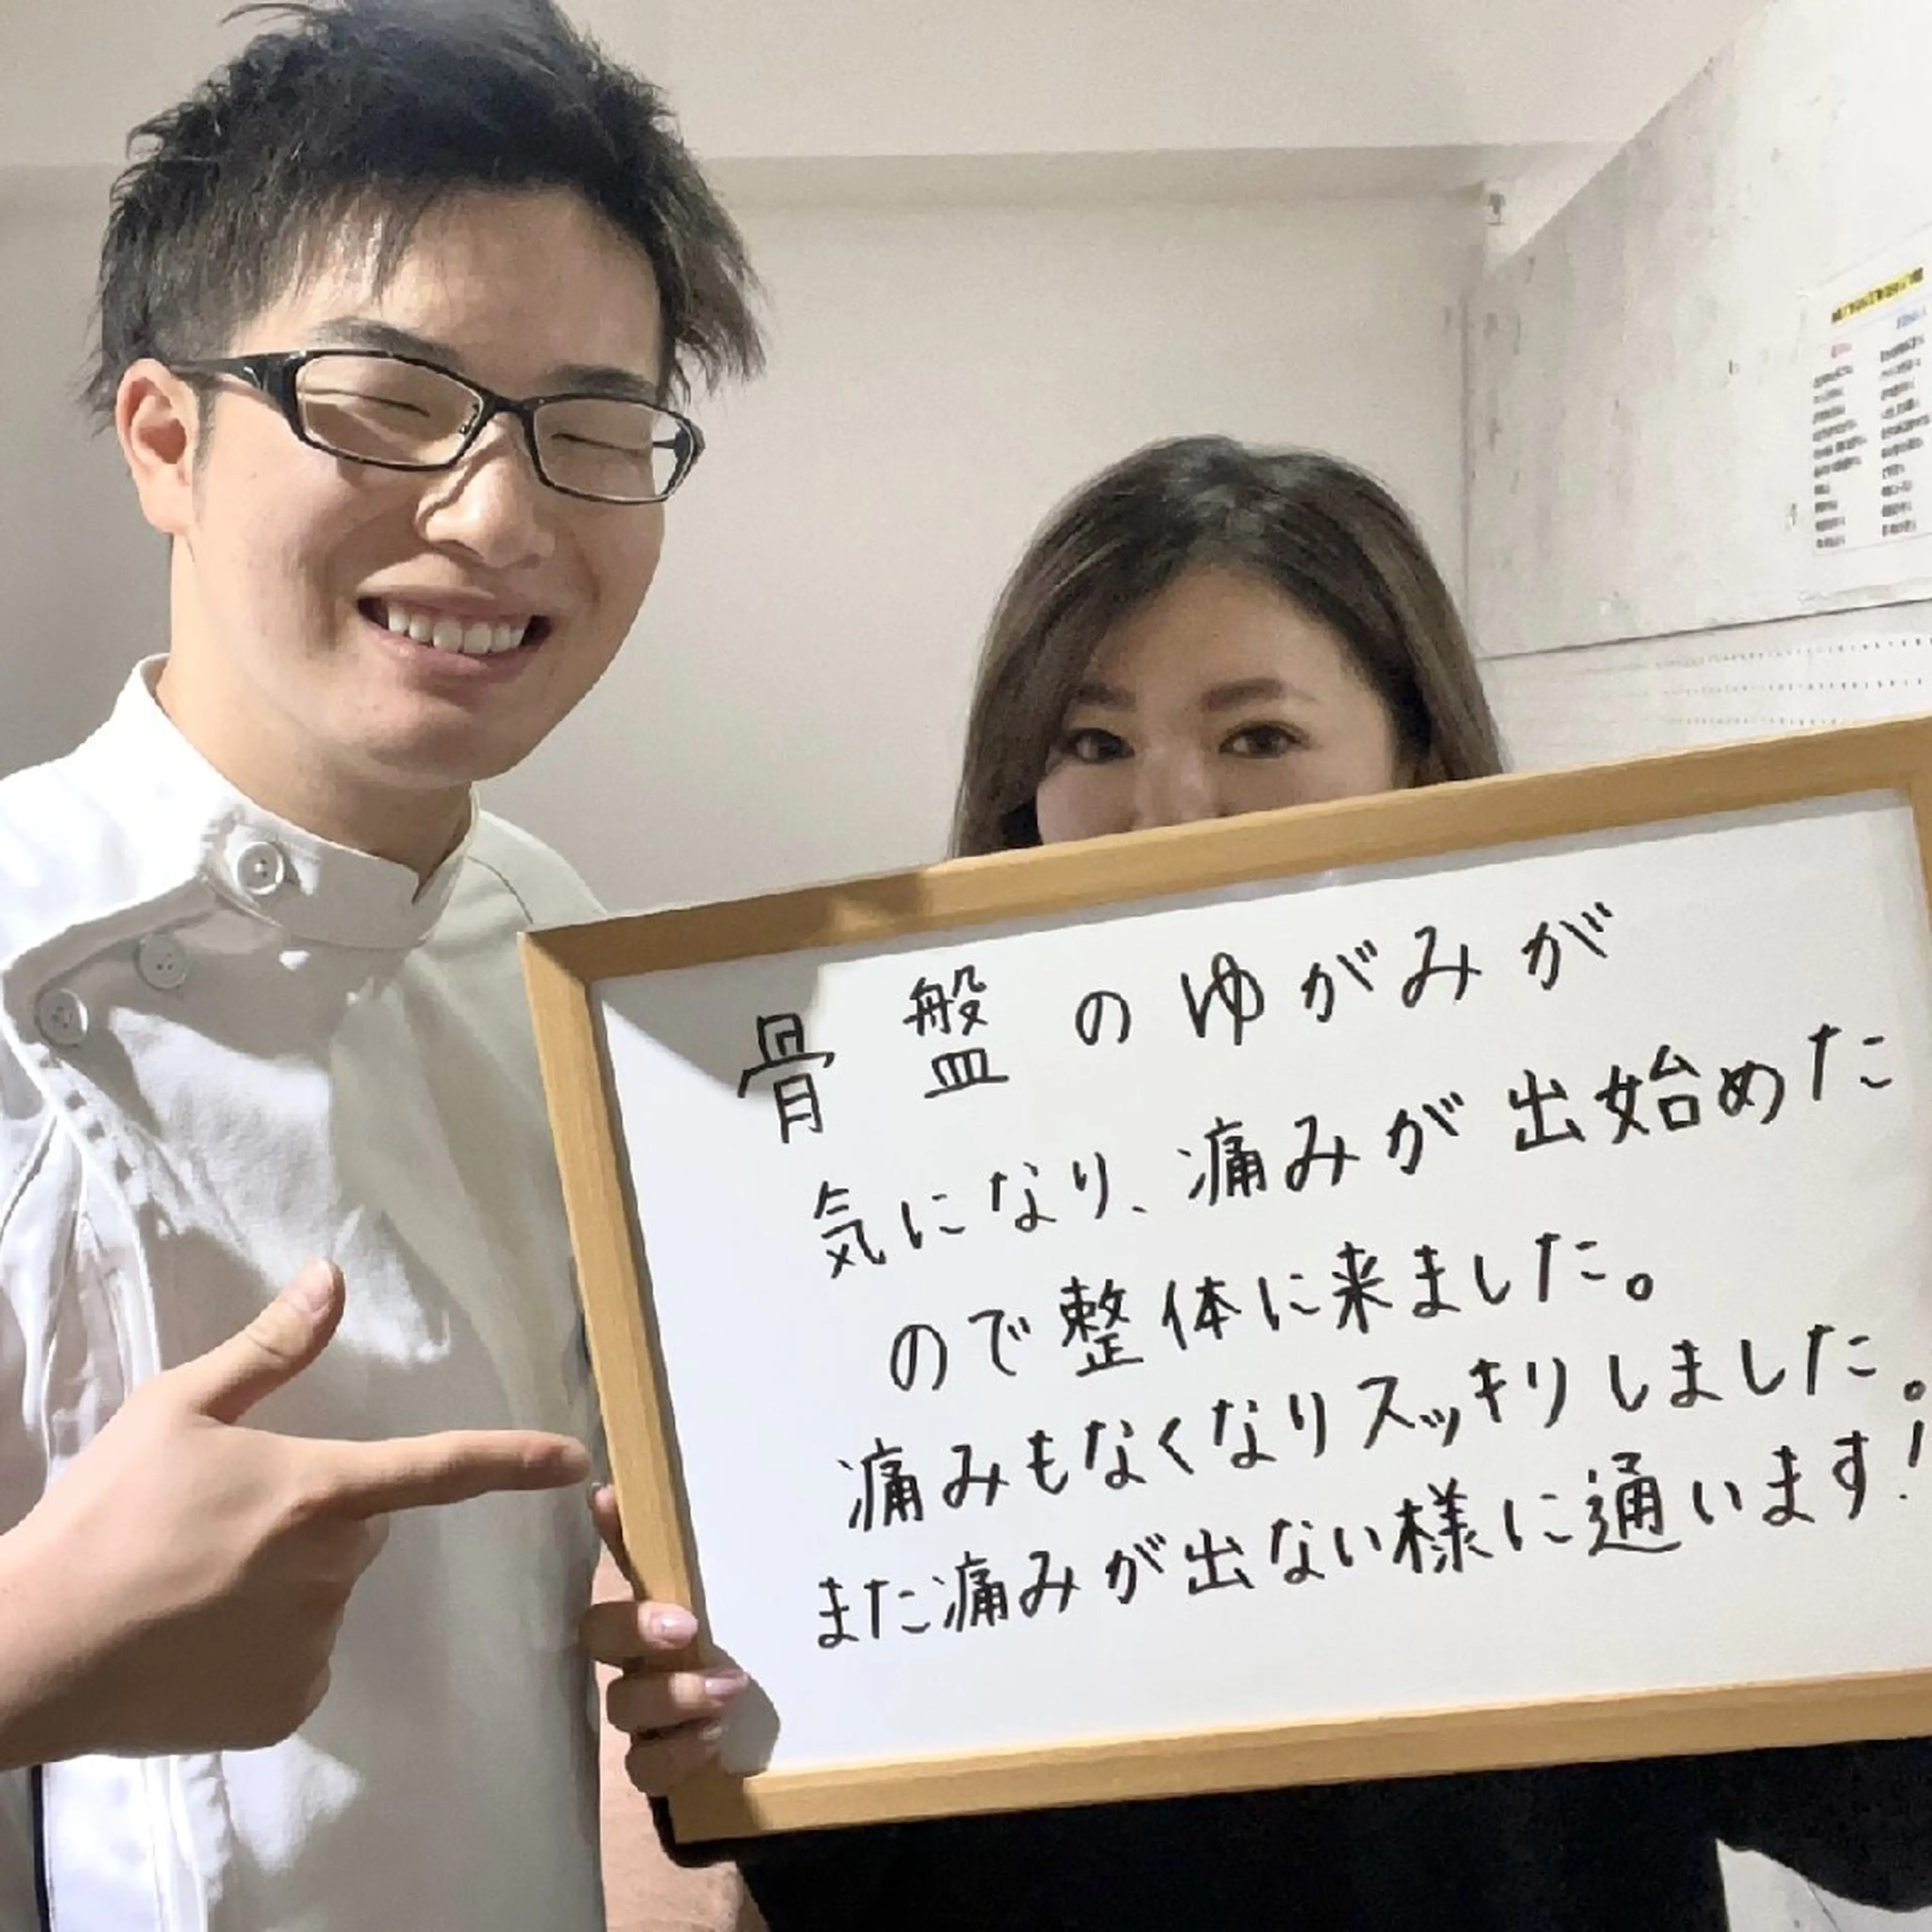 骨盤のゆがみが
気になり、痛みが出始めた
ので整体に来ました。
痛みもなくなりスッキリしました。
また痛みが出ない様に通います！